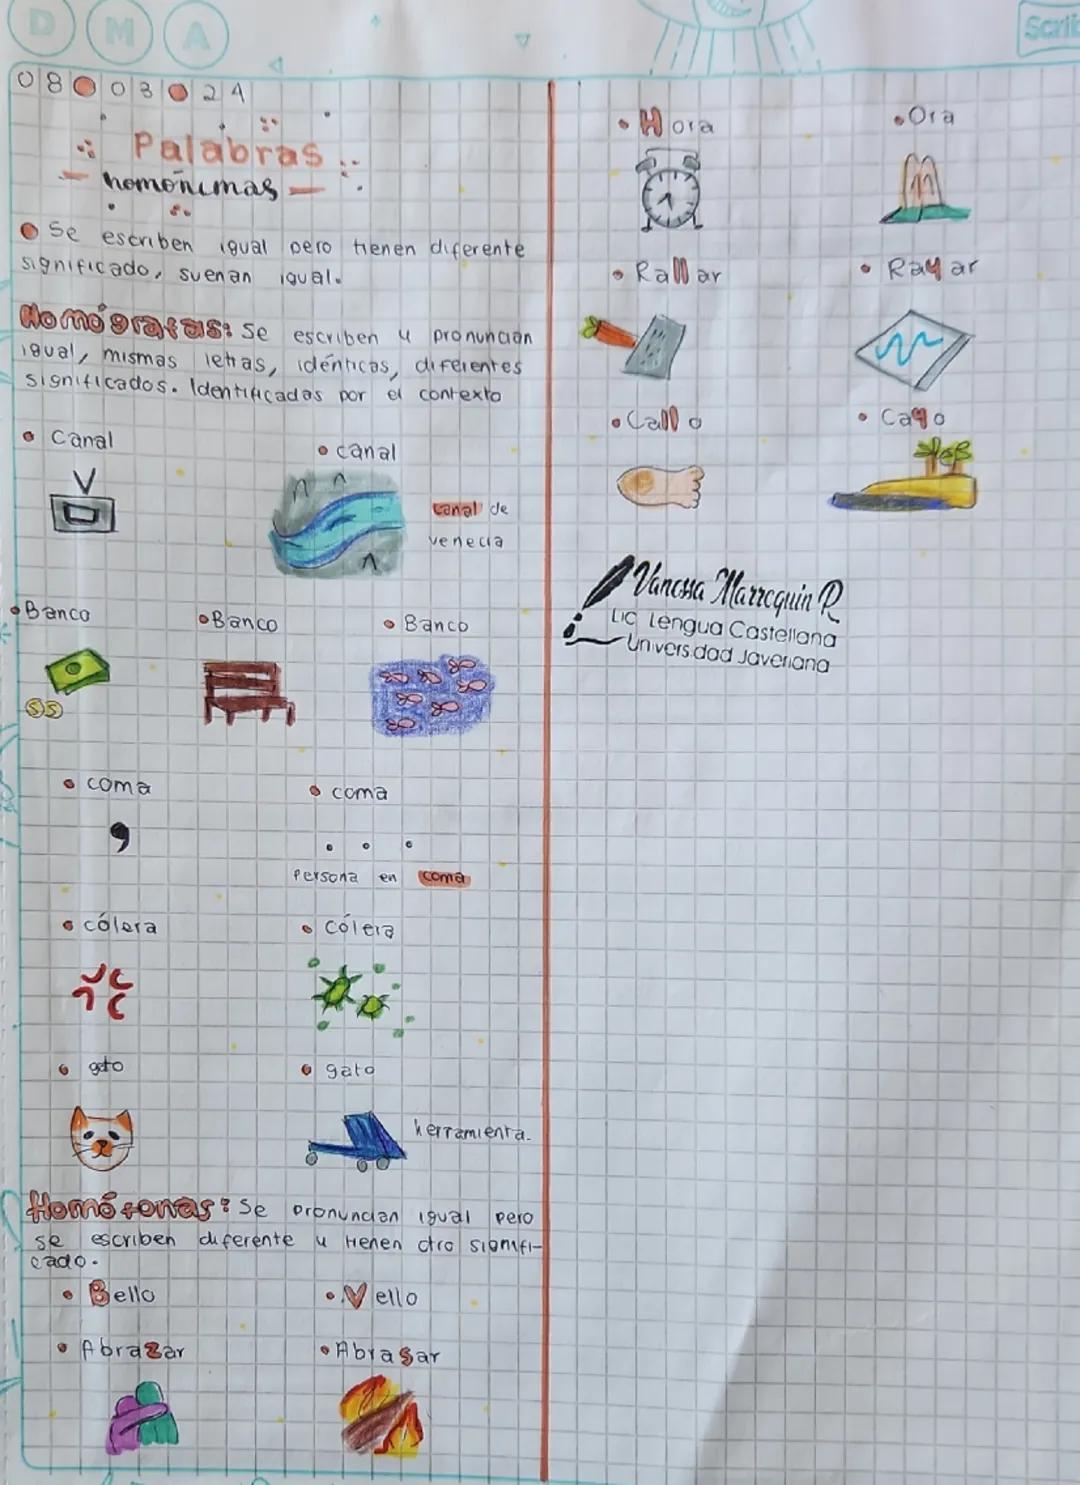 D M A
Scrib
08 03 24
Palabras
homónimas
Se escriben igual pero tienen diferente
significado, suenan igual.
Homógrafas: Se escriben y pronuncian
igual, mismas letras, idénticas, diferentes
significados. Identificadas por el contexto
Canal
canal
canal de
venecia
Banco
Banco
Banco
$ $
coma
coma
,
. . .
Persona en coma
cólera
cólera
gato
gato
herramienta.
Homófonas: Se pronuncian igual pero
se escriben diferente y tienen otro signifi-
cado.
Bello
Vello
Abrazar
Abrasar
Hora
Ora
Rallar
Rayar
Callo
Cayo
Vanessa Marroquin R
Lic Lengua Castellana
Universidad Javeriana